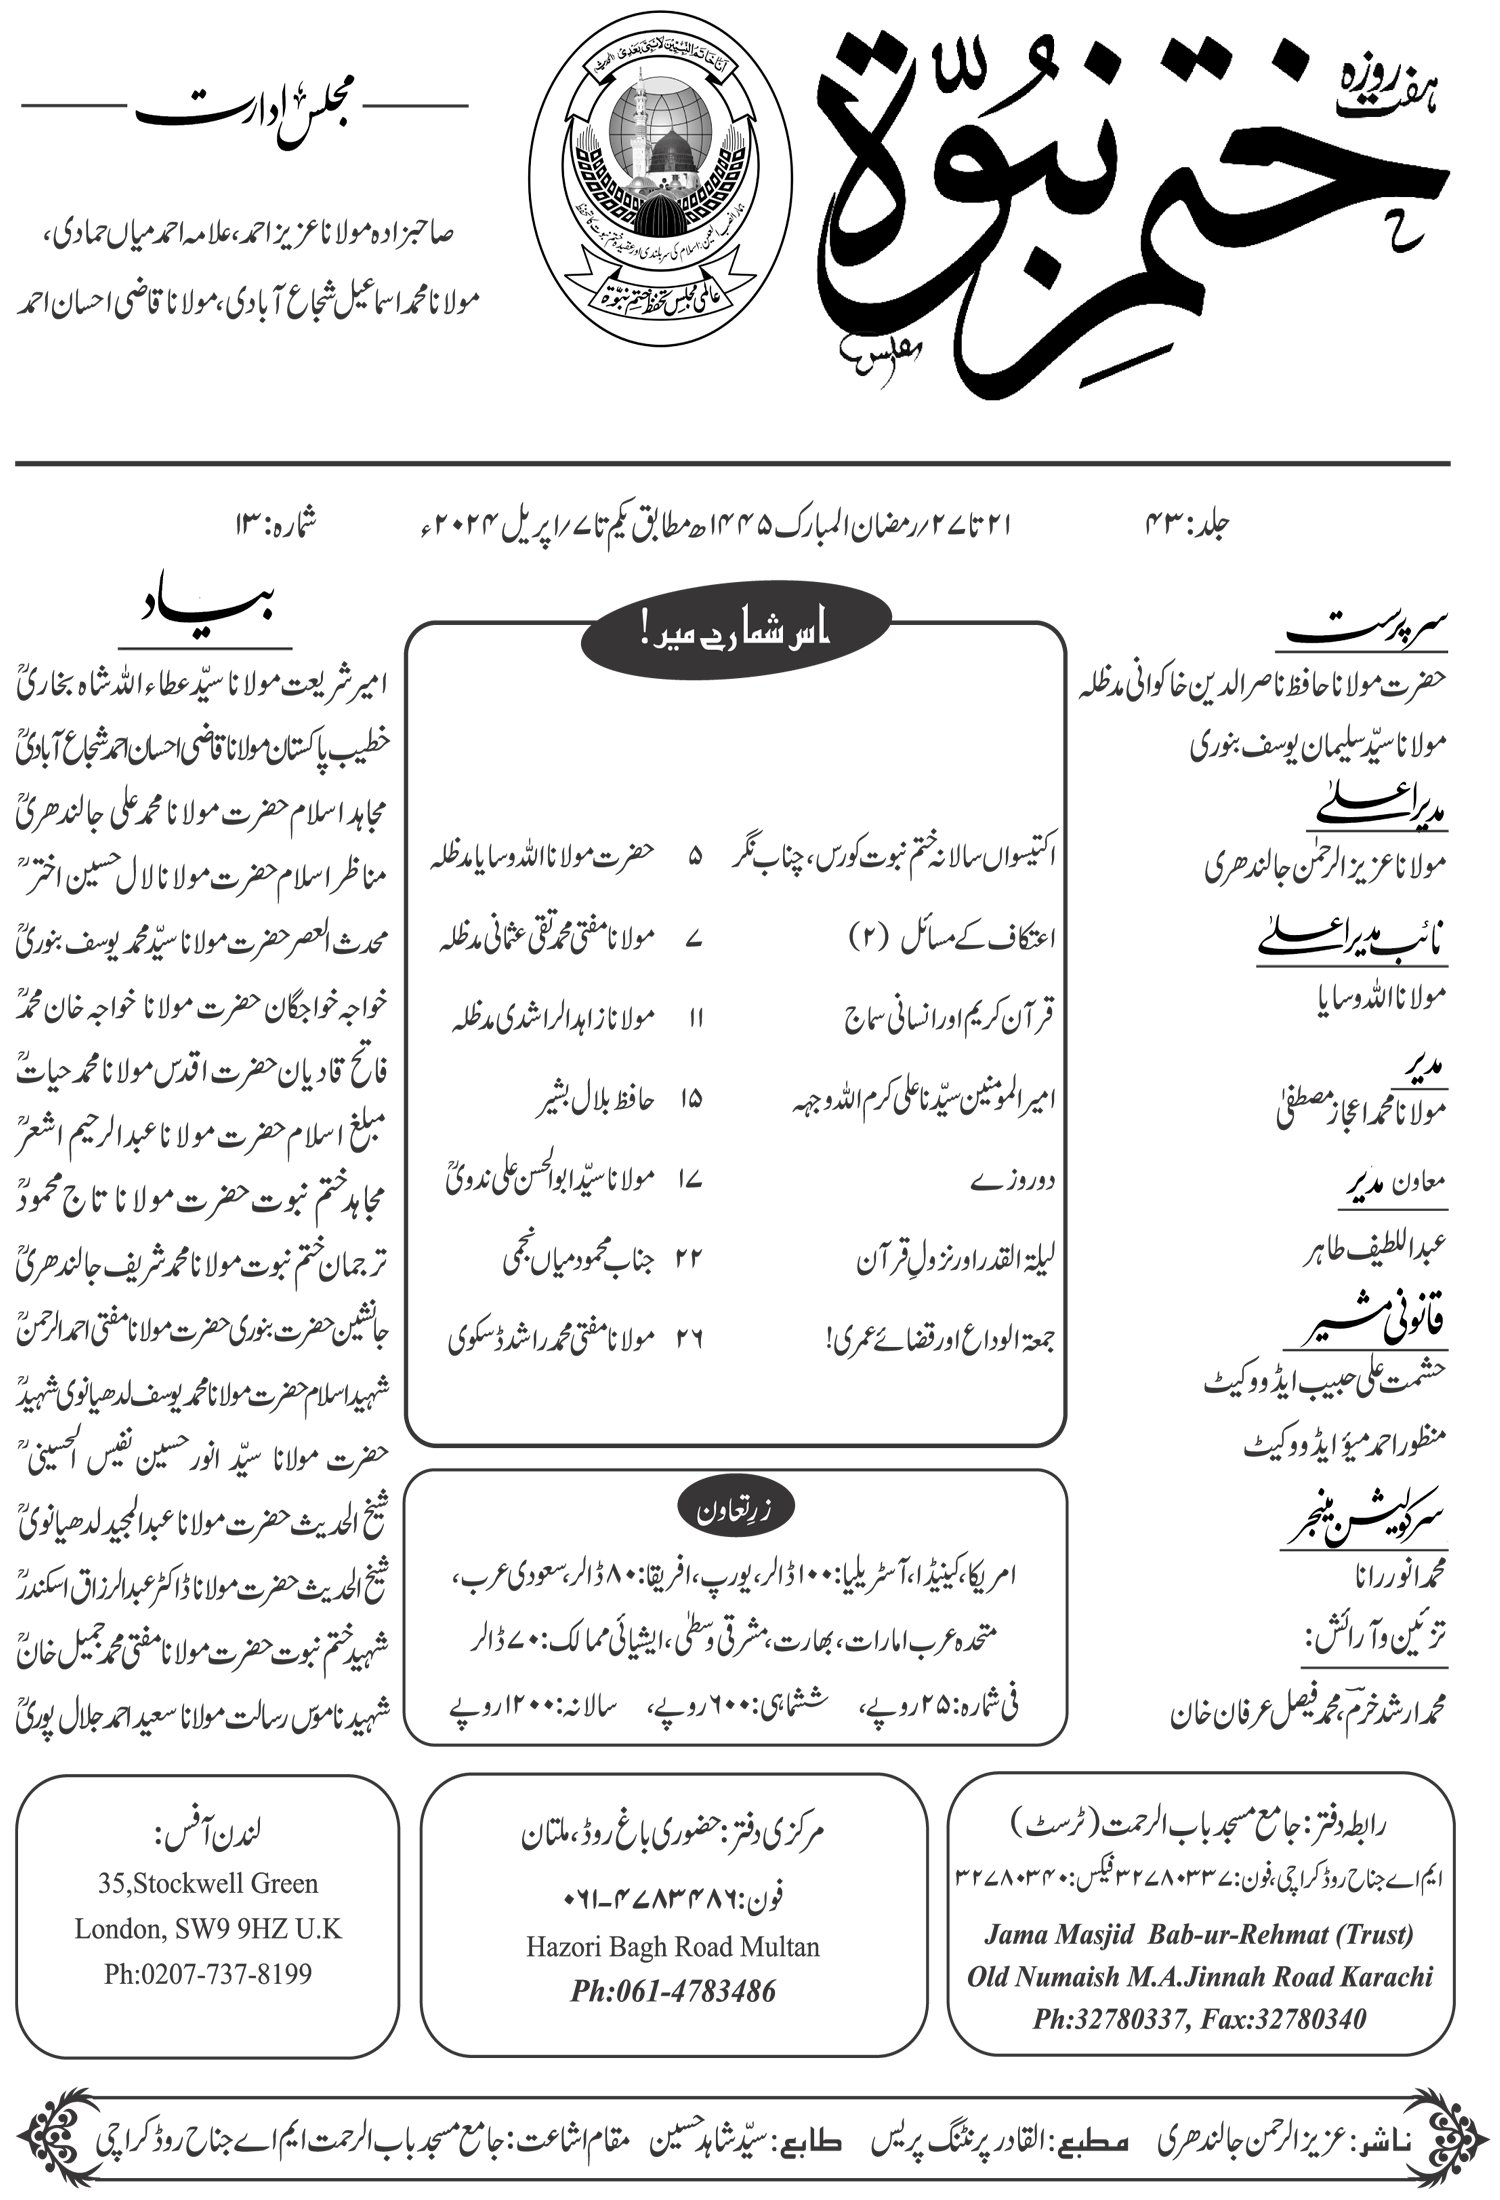 ہفت روزہ
ختم نبوّۃ
انا خاتم النبیین لا نبی بعدی (الحدیث)
ہمارا نصب العین: اسلام کی سربلندی اور عقیدہ ختم نبوت کا تحفظ
عالمی مجلس تحفظ ختم نبوّۃ
مجلس ادارت
صاحبزادہ مولانا عزیز احمد، علامہ احمد میاں حمادی،
مولانا محمد اسماعیل شجاع آبادی، مولانا قاضی احسان احمد
جلد: ۴۳
۲۱ تا ۲۷؍ رمضان المبارک ۱۴۴۵ھ مطابق یکم تا ۷؍ اپریل ۲۰۲۴ء
شمارہ: ۱۳
سرپرست
حضرت مولانا حافظ ناصر الدین خاکوانی مدظلہ
مولانا سیّد سلیمان یوسف بنوری
مدیر اعلیٰ
مولانا عزیز الرحمٰن جالندھری
نائب مدیر اعلیٰ
مولانا اللہ وسایا
مدیر
مولانا محمد اعجاز مصطفیٰ
معاون مدیر
عبداللطیف طاہر
قانونی مشیر
حشمت علی حبیب ایڈووکیٹ
منظور احمد میؤ ایڈووکیٹ
سرکولیشن مینجر
محمد انور رانا
تزئین و آرائش:
محمد ارشد خرم، محمد فیصل عرفان خان
اس شمارے میں!
اکتیسواں سالانہ ختم نبوت کورس، چناب نگر ۵ حضرت مولانا اللہ وسایا مدظلہ
اعتکاف کے مسائل (۲) ۷ مولانا مفتی محمد تقی عثمانی مدظلہ
قرآن کریم اور انسانی سماج ۱۱ مولانا زاہد الراشدی مدظلہ
امیر المومنین سیّدنا علی کرم اللہ وجہہ ۱۵ حافظ بلال بشیر
دو روزے ۱۷ مولانا سیّد ابوالحسن علی ندویؒ
لیلۃ القدر اور نزولِ قرآن ۲۲ جناب محمود میاں نجمی
جمعۃ الوداع اور قضائے عمری! ۲۶ مولانا مفتی محمد راشد ڈسکوی
زرتعاون
امریکا، کینیڈا، آسٹریلیا: ۱۰۰ ڈالر، یورپ، افریقا: ۸۰ ڈالر، سعودی عرب،
متحدہ عرب امارات، بھارت، مشرقی وسطٰی، ایشیائی ممالک: ۷۰ ڈالر
فی شمارہ: ۲۵ روپے، ششماہی: ۶۰۰ روپے، سالانہ: ۱۲۰۰ روپے
بیاد
امیر شریعت مولانا سیّد عطاء اللہ شاہ بخاریؒ
خطیب پاکستان مولانا قاضی احسان احمد شجاع آبادیؒ
مجاہد اسلام حضرت مولانا محمد علی جالندھریؒ
مناظر اسلام حضرت مولانا لال حسین اخترؒ
محدث العصر حضرت مولانا سیّد محمد یوسف بنوریؒ
خواجہ خواجگان حضرت مولانا خواجہ خان محمدؒ
فاتح قادیان حضرت اقدس مولانا محمد حیاتؒ
مبلغ اسلام حضرت مولانا عبدالرحیم اشعرؒ
مجاہد ختم نبوت حضرت مولانا تاج محمودؒ
ترجمان ختم نبوت مولانا محمد شریف جالندھریؒ
جانشین حضرت بنوری حضرت مولانا مفتی احمد الرحمنؒ
شہید اسلام حضرت مولانا محمد یوسف لدھیانوی شہیدؒ
حضرت مولانا سیّد انور حسین نفیس الحسینیؒ
شیخ الحدیث حضرت مولانا عبدالمجید لدھیانویؒ
شیخ الحدیث حضرت مولانا ڈاکٹر عبدالرزاق اسکندرؒ
شہید ختم نبوت حضرت مولانا مفتی محمد جمیل خانؒ
شہید ناموس رسالت مولانا سعید احمد جلال پوریؒ
رابطہ دفتر: جامع مسجد باب الرحمت (ٹرسٹ)
ایم اے جناح روڈ کراچی، فون: ۳۲۷۸۰۳۳۷ فیکس: ۳۲۷۸۰۳۴۰
Jama Masjid Bab-ur-Rehmat (Trust)
Old Numaish M.A.Jinnah Road Karachi
Ph:32780337, Fax:32780340
مرکزی دفتر: حضوری باغ روڈ، ملتان
فون: ۰۶۱-۴۷۸۳۴۸۶
Hazori Bagh Road Multan
Ph:061-4783486
لندن آفس:
35,Stockwell Green
London, SW9 9HZ U.K
Ph:0207-737-8199
ناشر: عزیز الرحمن جالندھری مطبع: القادر پرنٹنگ پریس طابع: سیّد شاہد حسین مقام اشاعت: جامع مسجد باب الرحمت ایم اے جناح روڈ کراچی